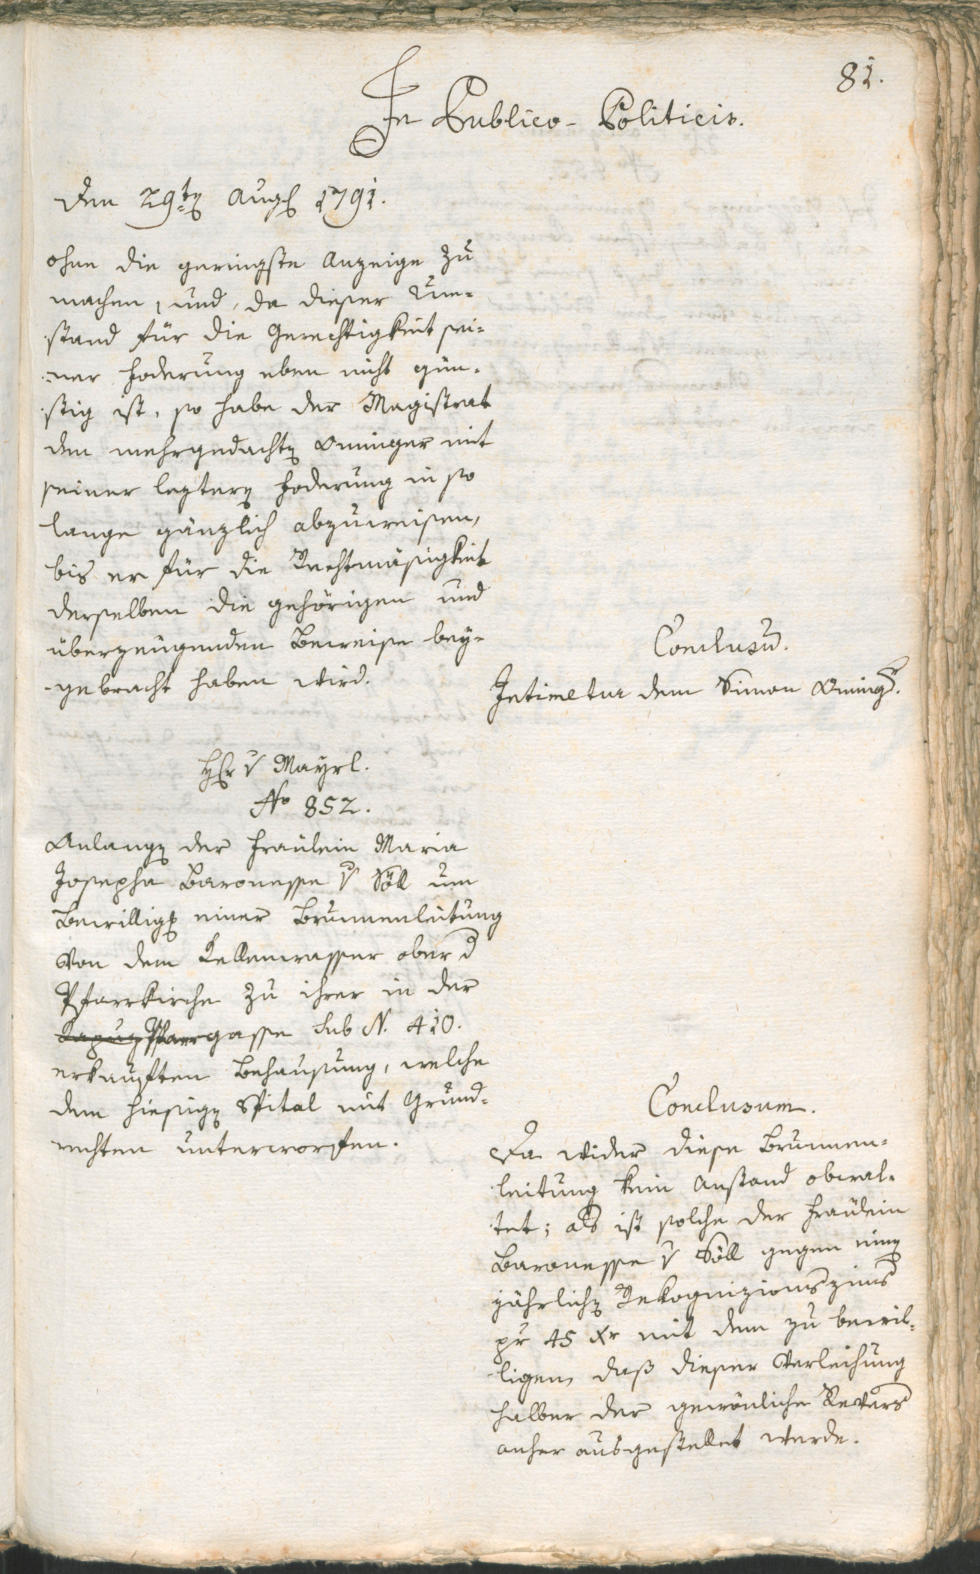 81.
In Publico-Politicis.
Den 29ten Augs 1791.
ohne die geringste Anzeige zu
machen, und, da dieser Um-
stand für die Gerechtigkeit sei-
ner Foderung eben nicht gün-
stig ist, so habe der Magistrat
den mehrgedachten Aminger mit
seiner leztern Foderung in so
lange gänzlich abzuweisen,
bis er für die Rechtmäsigkeit
derselben die gehörigen und
überzeugenden Beweise bey-
gebracht haben wird.
Conclusum.
Intimetur dem Simon Aming.
Hr v Mayrl.
No 852.
Anlangen der Fräulein Maria
Josepha Baronesse v Söll um
Bewilligg einer Brunnenleitung
von dem Kellenwasser ober d
Pfarrkirche zu ihrer in der
Kapuz Pfarrgasse sub N. 410.
erkauften Behausung, welche
dem hiesigen Spital mit Grund-
rechten unterworfen.
Conclusum.
Da wider diese Brunnen-
leitung kein Anstand obwal-
tet; als ist solche der Fräulein
Baronesse v Söll gegen einen
jährlichen Rekognizionszins
pr 45 Xr mit dem zu bewil-
ligen, daß dieser Verleihung
halber der gewönliche Revers
anher ausgestellet werde.